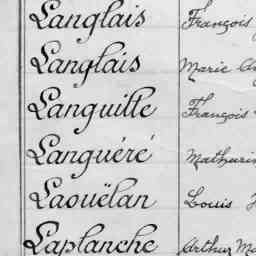 Langlais François
Langlais Marie
Languille François
Languéré Mathurin
Laouëlan Louis
Laplanche Arthur